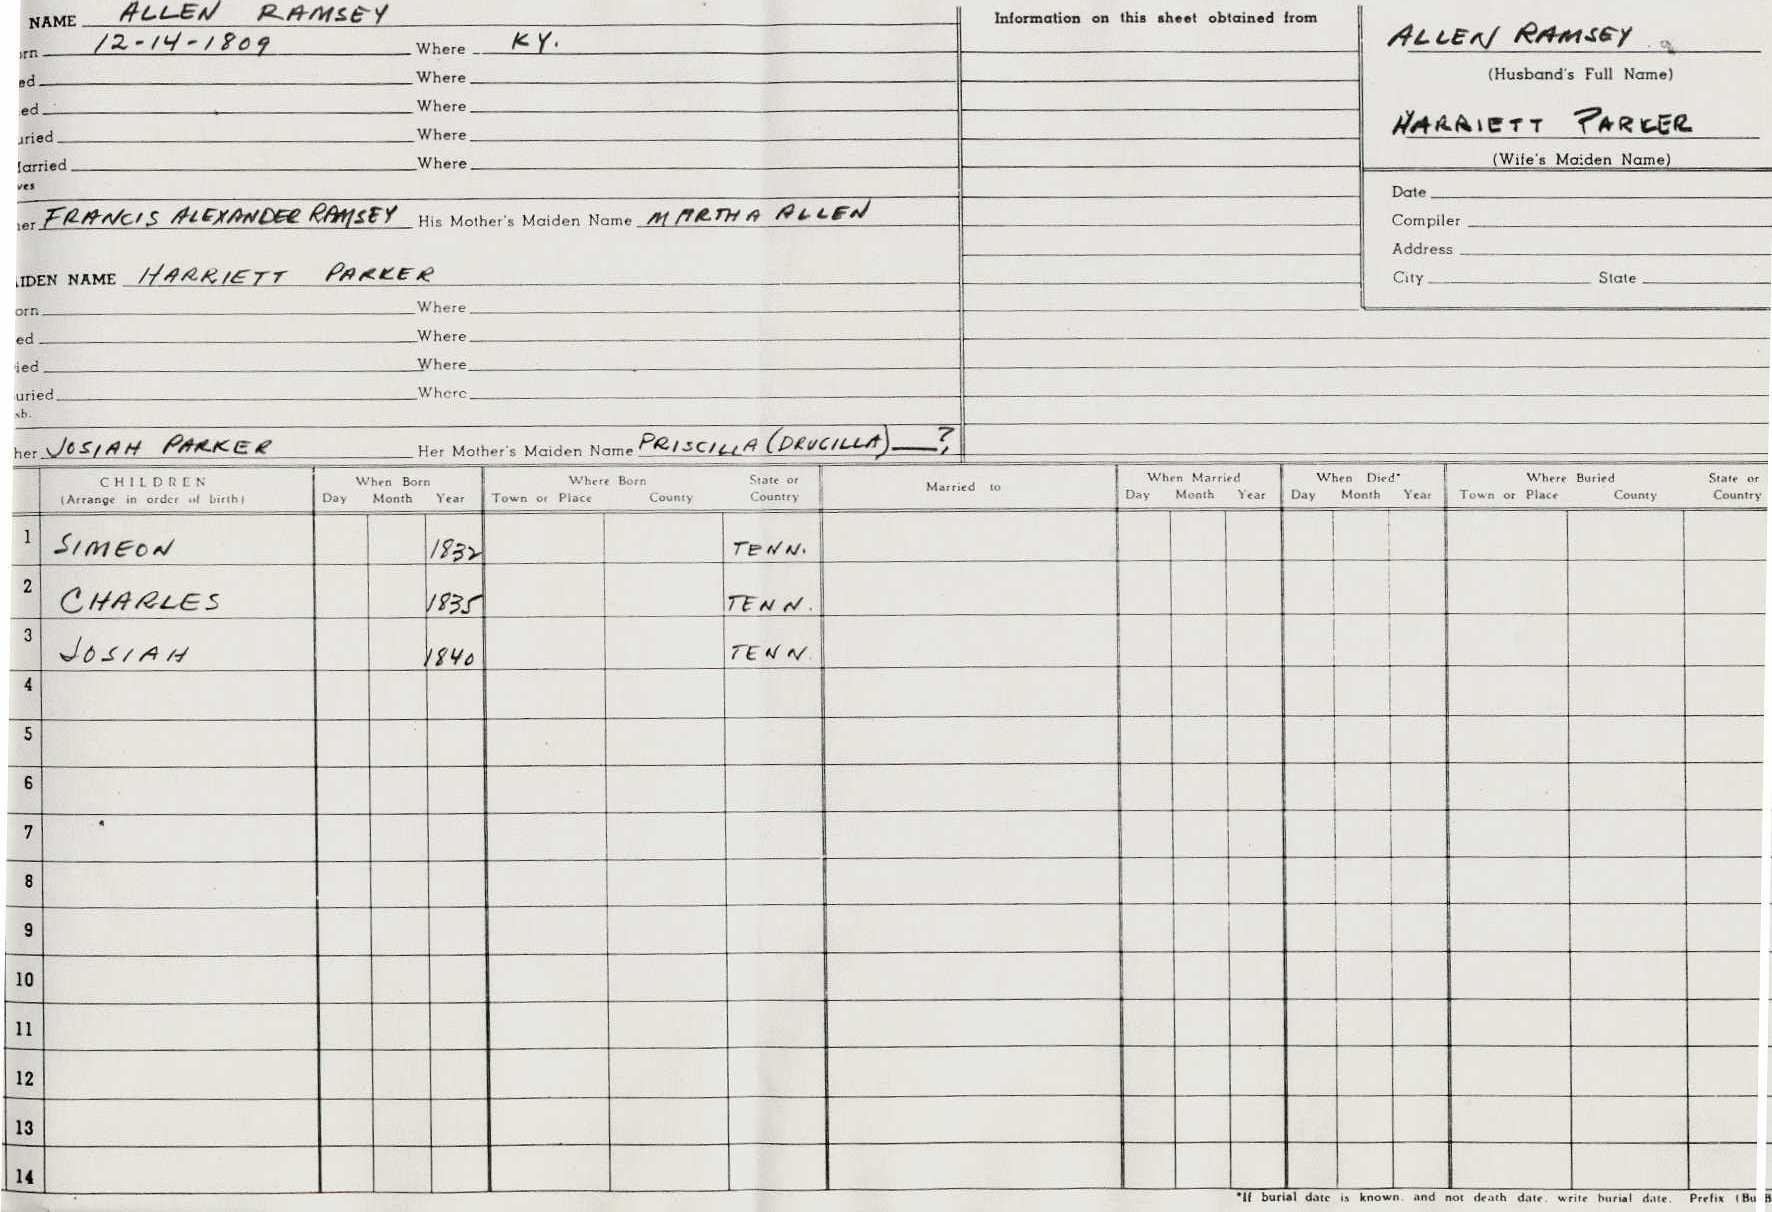 NAME ALLEN RAMSEY
rn 12-14-1809 Where KY.
ed Where
ed Where
uried Where
Married Where
ves
her FRANCIS ALEXANDER RAMSEY His Mother's Maiden Name MARTHA ALLEN
IDEN NAME HARRIETT PARKER
orn Where
ed Where
ied Where
uried Where
sb.
her JOSIAH PARKER Her Mother's Maiden Name PRISCILLA (DRUCILLA) ?
Information on this sheet obtained from
ALLEN RAMSEY
(Husband's Full Name)
HARRIETT PARKER
(Wife's Maiden Name)
Date
Compiler
Address
City State
CHILDREN When Born Where Born State or Married to When Married When Died* Where Buried State or
(Arrange in order of birth) Day Month Year Town or Place County Country Day Month Year Day Month Year Town or Place County Country
1 SIMEON 1832 TENN.
2 CHARLES 1835 TENN.
3 JOSIAH 1840 TENN.
4
5
6
7
8
9
10
11
12
13
14
*If burial date is known, and not death date, write burial date. Prefix (Bu